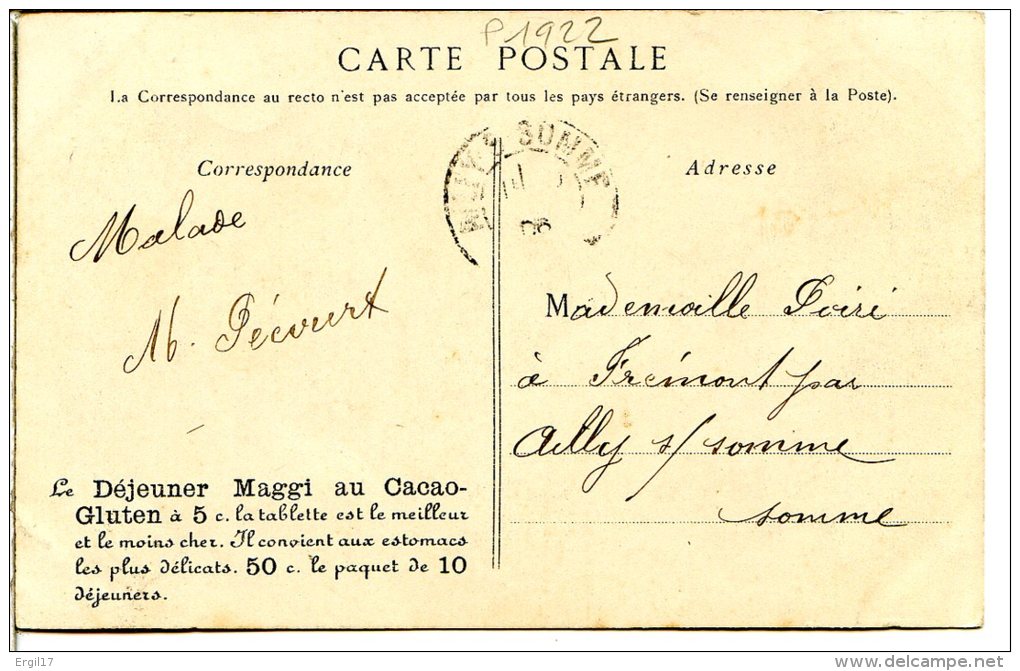 P1922
CARTE POSTALE
La Correspondance au recto n'est pas acceptée par tous les pays étrangers. (Se renseigner à la Poste).
SOMME
06
Correspondance
Adresse
Malade
M. Pécourt
Mademoille Poiré
à Frémont par
Ailly s/ somme
somme
Le Déjeuner Maggi au Cacao-
Gluten à 5 c. la tablette est le meilleur
et le moins cher. Il convient aux estomacs
les plus délicats. 50 c. le paquet de 10
déjeuners.
Ergil17
www.delcampe.net